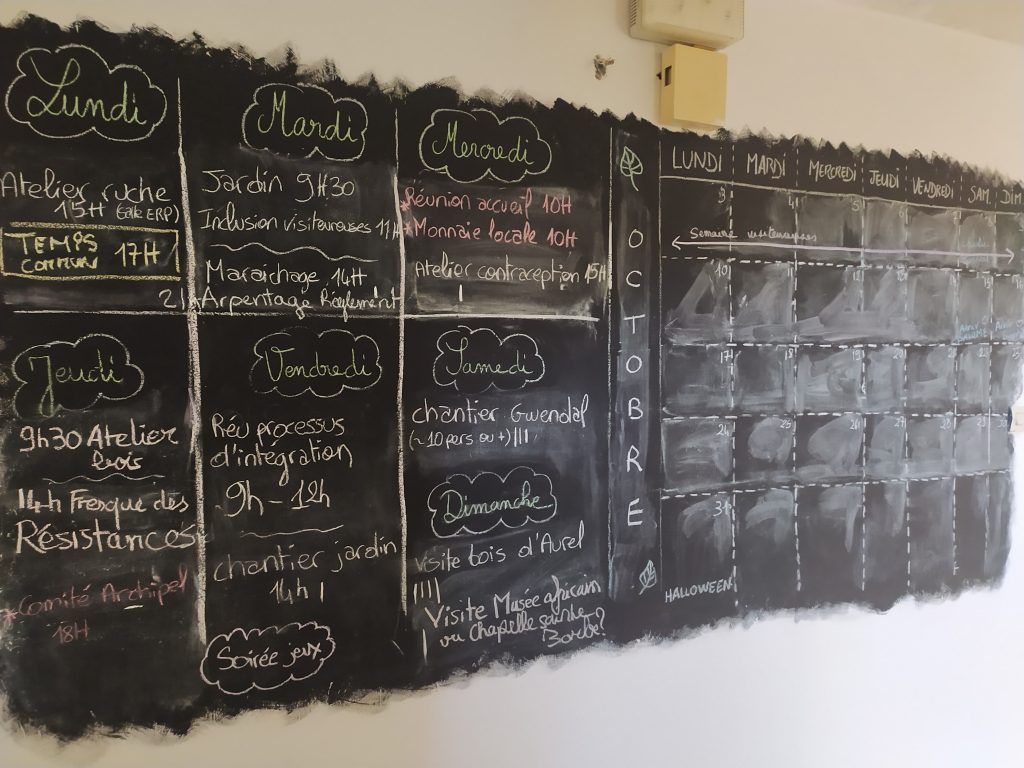 Lundi
Atelier ruche
15H (salle ERP)
TEMPS
COMMUN 17H
Mardi
Jardin 9H30
Inclusion visiteureuses 11H
Maraichage 14H
Arpentage Règlement
Mercredi
*Réunion accueil 10H
*Monnaie locale 10H
Atelier contraception 15H
Jeudi
9h30 Atelier
bois
14h Fresque des
Résistances
*Comité Archipel
18H
Vendredi
Réu processus
d'intégration
9h-12h
chantier jardin
14h
Soirée jeux
Samedi
chantier Gwendal
(~10 pers ou +)
Dimanche
visite bois d'Aurel
Visite Musée africain
ou Chapelle sainte
Barbe?
OCTOBRE
LUNDI MARDI MERCREDI JEUDI VENDREDI SAM. DIM
3 4 5 6
Semaine visiteureuses
10 11 12 13
17 18 19 20 21 22 23
24 25 26 27 28 29 30
31
HALLOWEEN